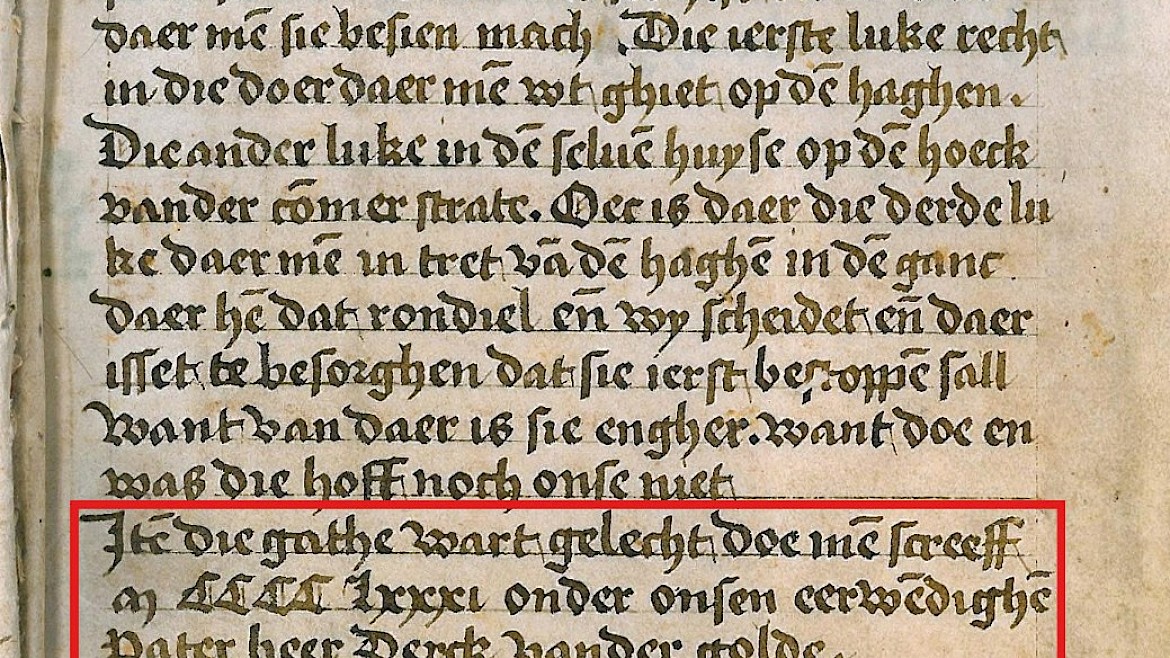 daer mē sie besien mach. Die ierste luke recht
in die doer daer mē wt ghiet op dē haghen.
Die ander luke in dē seluē huyse op dē hoeck
vander cōmer strate. Oec is daer die derde lu
ke daer mē in tret vā dē haghē in dē ganc
daer hē dat rondiel eñ wy scheidet eñ daer
isset te besorghen dat sie ierst bestoppē sall
Want van daer is sie engher. want doe en
was die hoff noch onse niet
Itē die gathe wart gelecht doe mē screeff
m CCCC lxxxi onder onsen eerwēdighē
Pater heer Derck vander golde.